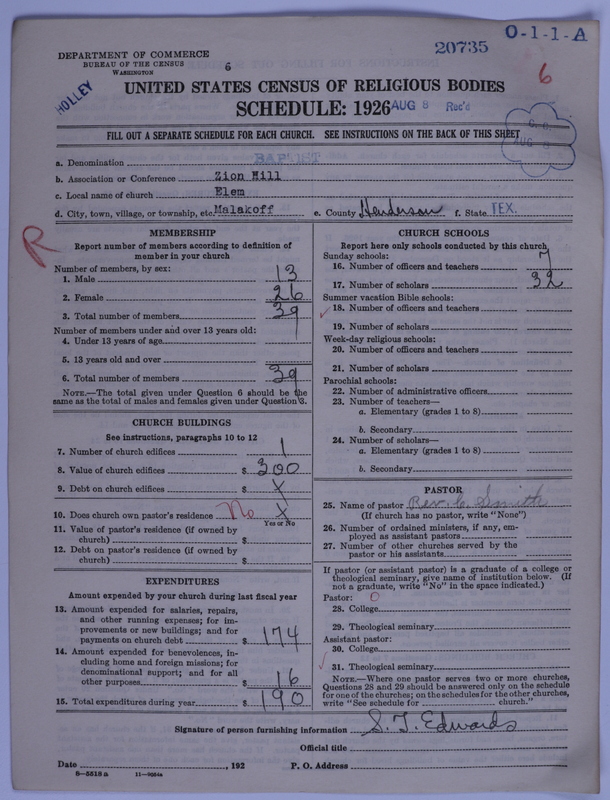 20735
O-1-1-A
DEPARTMENT OF COMMERCE
BUREAU OF THE CENSUS
WASHINGTON
6
6
HOLLEY
UNITED STATES CENSUS OF RELIGIOUS BODIES
SCHEDULE: 1926 AUG 8 Rec'd
FILL OUT A SEPARATE SCHEDULE FOR EACH CHURCH. SEE INSTRUCTIONS ON THE BACK OF THIS SHEET
AUG 8
a. Denomination BAPTIST
b. Association or Conference Zion Hill
c. Local name of church Elem
d. City, town, village, or township, etc. Malakoff e. County Henderson f. State TEX.
R
MEMBERSHIP
Report number of members according to definition of
member in your church
Number of members, by sex:
1. Male 13
2. Female 26
3. Total number of members 39
Number of members under and over 13 years old:
4. Under 13 years of age
5. 13 years old and over
6. Total number of members 39
NOTE.—The total given under Question 6 should be the
same as the total of males and females given under Question 3.
CHURCH BUILDINGS
See instructions, paragraphs 10 to 12
7. Number of church edifices 1
8. Value of church edifices $ 300
9. Debt on church edifices $ X
10. Does church own pastor's residence No X
Yes or No
11. Value of pastor's residence (if owned by
church) $
12. Debt on pastor's residence (if owned by
church) $
EXPENDITURES
Amount expended by your church during last fiscal year
13. Amount expended for salaries, repairs,
and other running expenses; for im-
provements or new buildings; and for
payments on church debt $ 174
14. Amount expended for benevolences, in-
cluding home and foreign missions; for
denominational support; and for all
other purposes $ 16
15. Total expenditures during year $ 190
CHURCH SCHOOLS
Report here only schools conducted by this church
Sunday schools:
16. Number of officers and teachers 7
17. Number of scholars 32
Summer vacation Bible schools:
18. Number of officers and teachers
19. Number of scholars
Week-day religious schools:
20. Number of officers and teachers
21. Number of scholars
Parochial schools:
22. Number of administrative officers
23. Number of teachers—
a. Elementary (grades 1 to 8)
b. Secondary
24. Number of scholars—
a. Elementary (grades 1 to 8)
b. Secondary
PASTOR
25. Name of pastor Rev. C. Smith
(If church has no pastor, write "None")
26. Number of ordained ministers, if any, em-
ployed as assistant pastors
27. Number of other churches served by the
pastor or his assistants
If pastor (or assistant pastor) is a graduate of a college or
theological seminary, give name of institution below. (If
not a graduate, write "No" in the space indicated.)
Pastor: O
28. College
29. Theological seminary
Assistant pastor:
30. College
31. Theological seminary
NOTE.—Where one pastor serves two or more churches,
Questions 28 and 29 should be answered only on the schedule
for one of the churches; on the schedules for the other churches,
write "See schedule for church."
Signature of person furnishing information S. T. Edwards
Official title
Date , 192 P. O. Address
8-5518 a